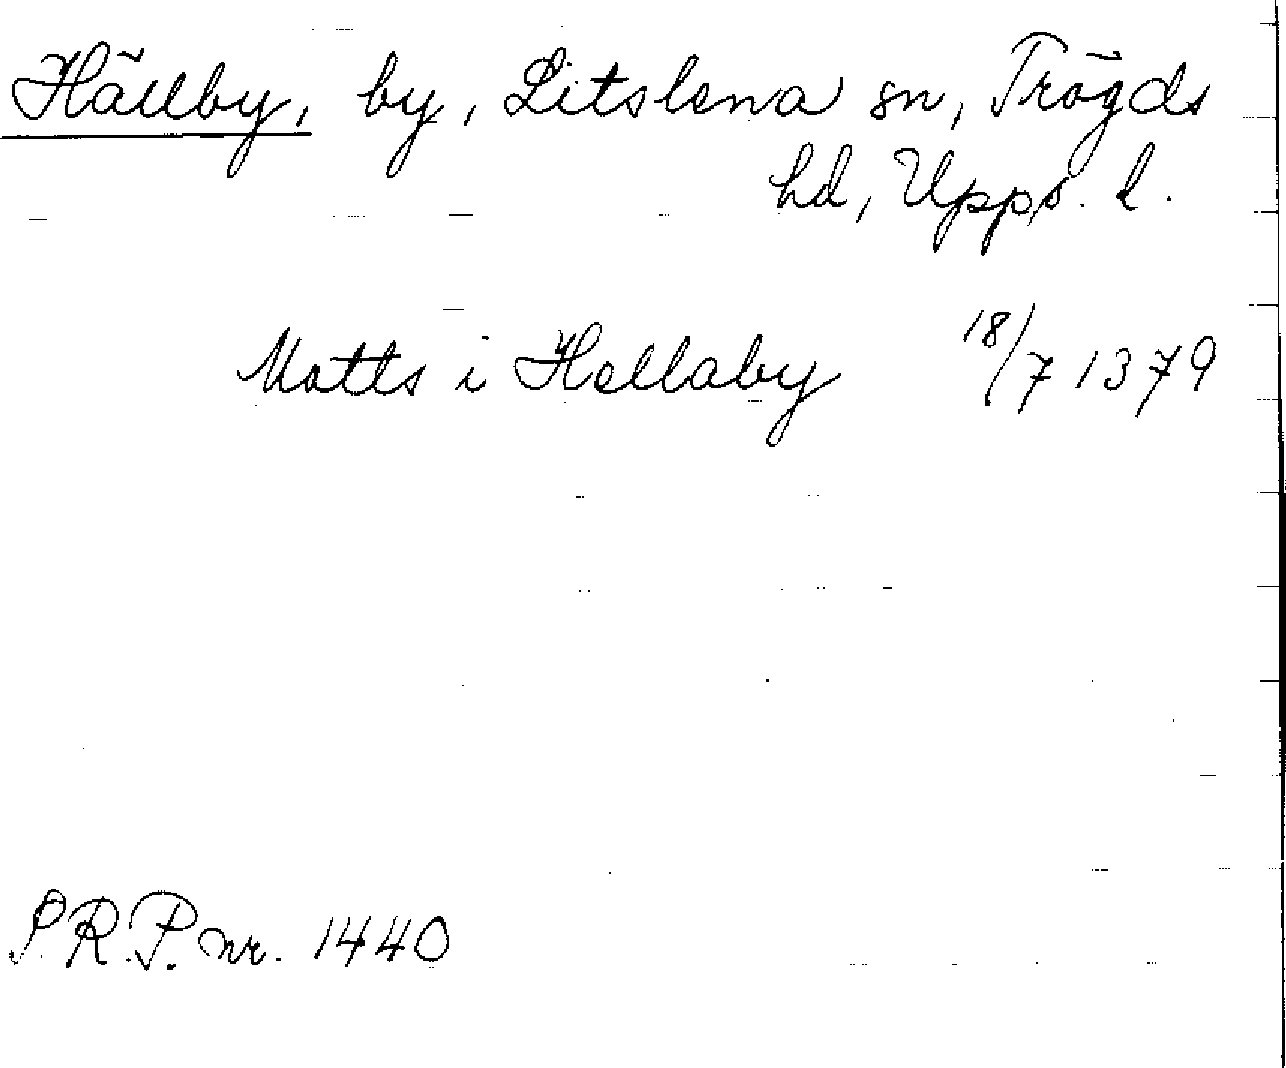 Hällby, by, Litslena sn, Trögds
hd, Upps. l.
Matts i Hellaby 18/7 1379
S.R.P. nr. 1440